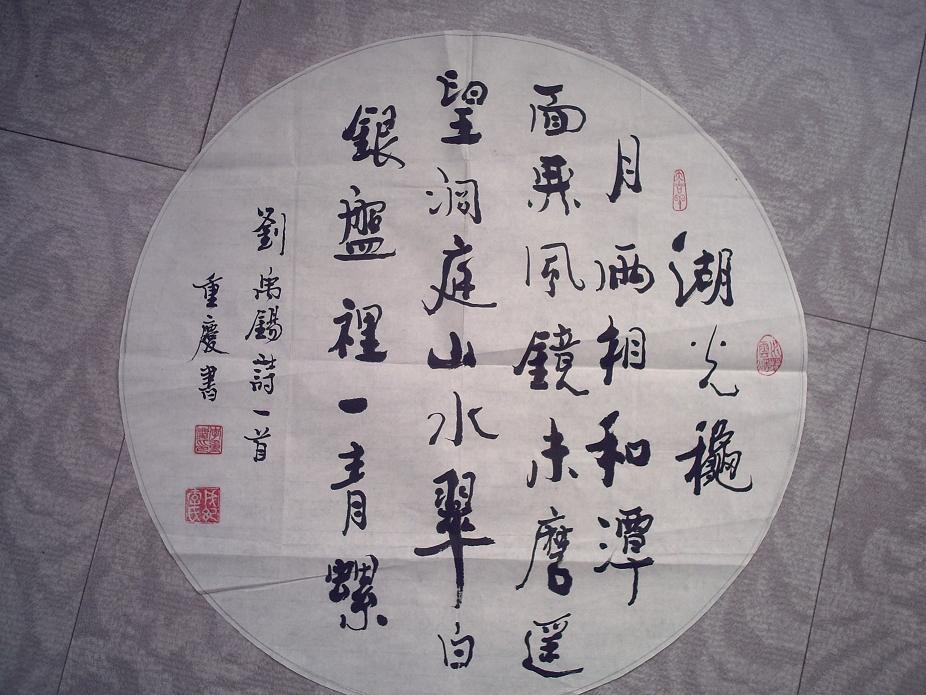 湖光穐
月兩相和潭
面無風鏡未磨遥
望洞庭山水翠白
銀盤裡一青螺
劉禹錫詩一首
重慶書